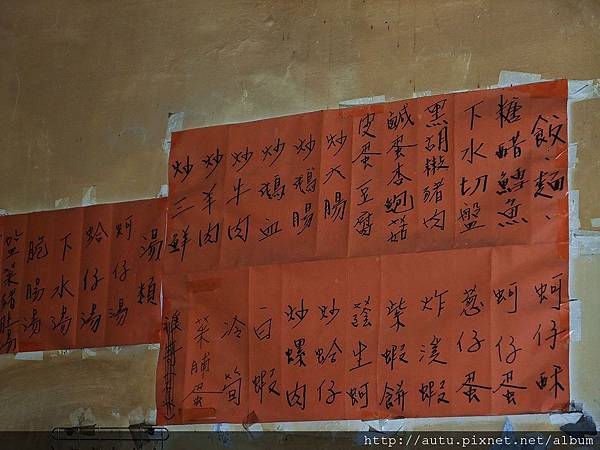 飯麵、
糖醋鱈魚
下水切盤
黑胡椒豬肉
鹹蛋杏鮑菇
皮蛋豆腐
炒大腸
炒鵝腸
炒鵝血
炒牛肉
炒羊肉
炒三鮮
蚵仔酥
蚵仔蛋
蔥仔蛋
炸溪蝦
紫蝦餅
蔭生蚵
炒蛤仔
炒螺肉
白蝦
冷筍
菜脯蛋
湯類
蚵仔湯
蛤仔湯
下水湯
脆腸湯
http://autu.pixnet.net/album